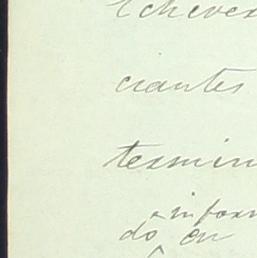 Echever
ciantes
termin
inform
do en